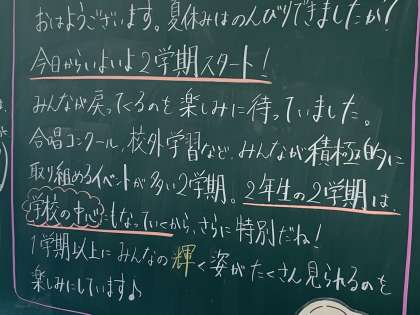 おはようございます。夏休みはのんびりできましたか?
今日からいよいよ2学期スタート!
みんなが戻ってくるのを楽しみに待っていました。
合唱コンクール、校外学習など、みんなが積極的に
取り組めるイベントが多い2学期。2年生の2学期は、
学校の中心にもなっていくから、さらに特別だね!
1学期以上にみんなの輝く姿がたくさん見られるのを
楽しみにしています♪